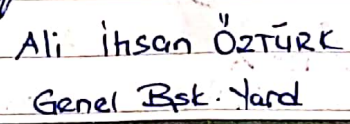 Ali İhsan ÖZTÜRK
Genel Bşk. Yard